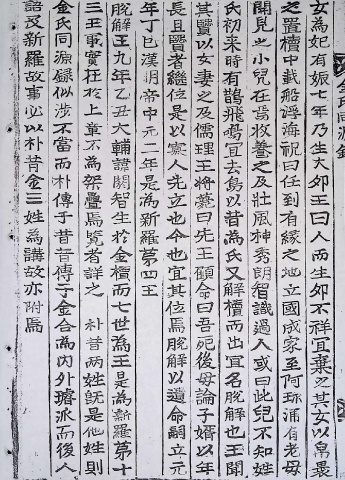 女爲妃有娠七年乃生大卵王曰人而生卵不祥宜棄之其女以帛裹
之置櫝中載船浮海祝曰任到有緣之地立國成家至阿珍浦有老母
開見之小兒在焉收養之及壯風神秀朗智識過人或曰此兒不知姓
氏初來時有鵲飛鳴宜去鳥以昔爲氏又解櫝而出宜名脫解也王聞
其賢以女妻之及儒理王將薨曰先王顧命曰吾死後毋論子婿以年
長且賢者继位是以寡人先立也今也宜其位焉脫解以遺命嗣立元
年丁巳漢明帝中元二年是為新羅第四王
脫解王九年乙丑大輔諱閼智生於金櫃而七世為王是為新羅第十
三王事實在於上章不為架疊焉覽者詳之 朴昔两姓旣是他姓則
金氏同源録似涉不當而朴傳于昔昔傳于金合為内外璿派而後人
語及新羅故事必以朴昔金三姓為講故亦附焉
金氏同源錄